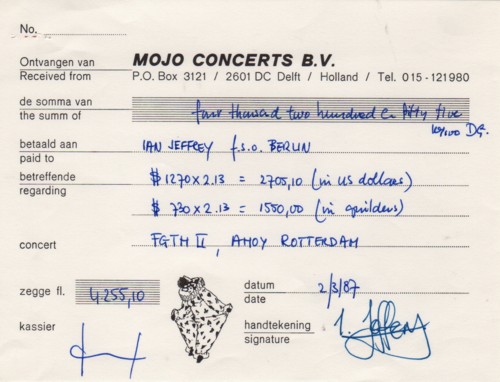 No.
Ontvangen van MOJO CONCERTS B.V.
Received from P.O. Box 3121 / 2601 DC Delft / Holland / Tel. 015 - 121980
de somma van four thousand two hundred & fifty five
the summ of 10/100 DG.
betaald aan IAN JEFFREY f.s.o. BERLIN
paid to
betreffende $ 1270 x 2.13 = 2705,10 (in us dollars)
regarding
$ 730 x 2.13 = 1550,00 (in guilders)
concert FGTH II, AHOY ROTTERDAM
zegge fl. 4255,10
datum 2/3/87
date
kassier
handtekening I. Jeffery
signature